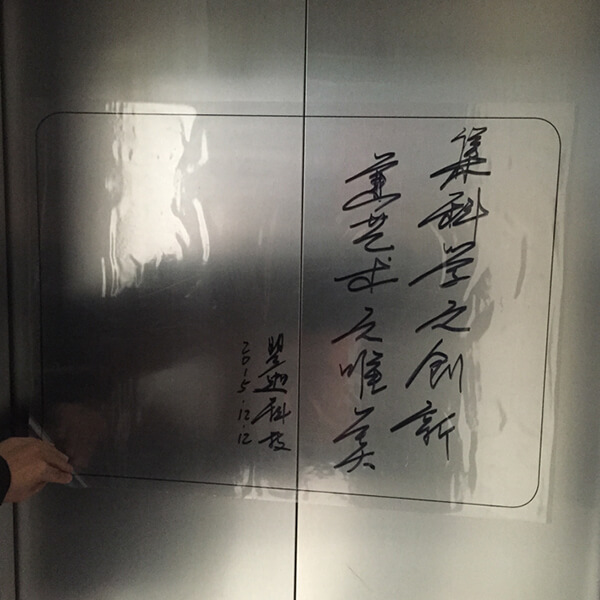 集科学之创新
兼艺术之唯美
科技
2015.12.12